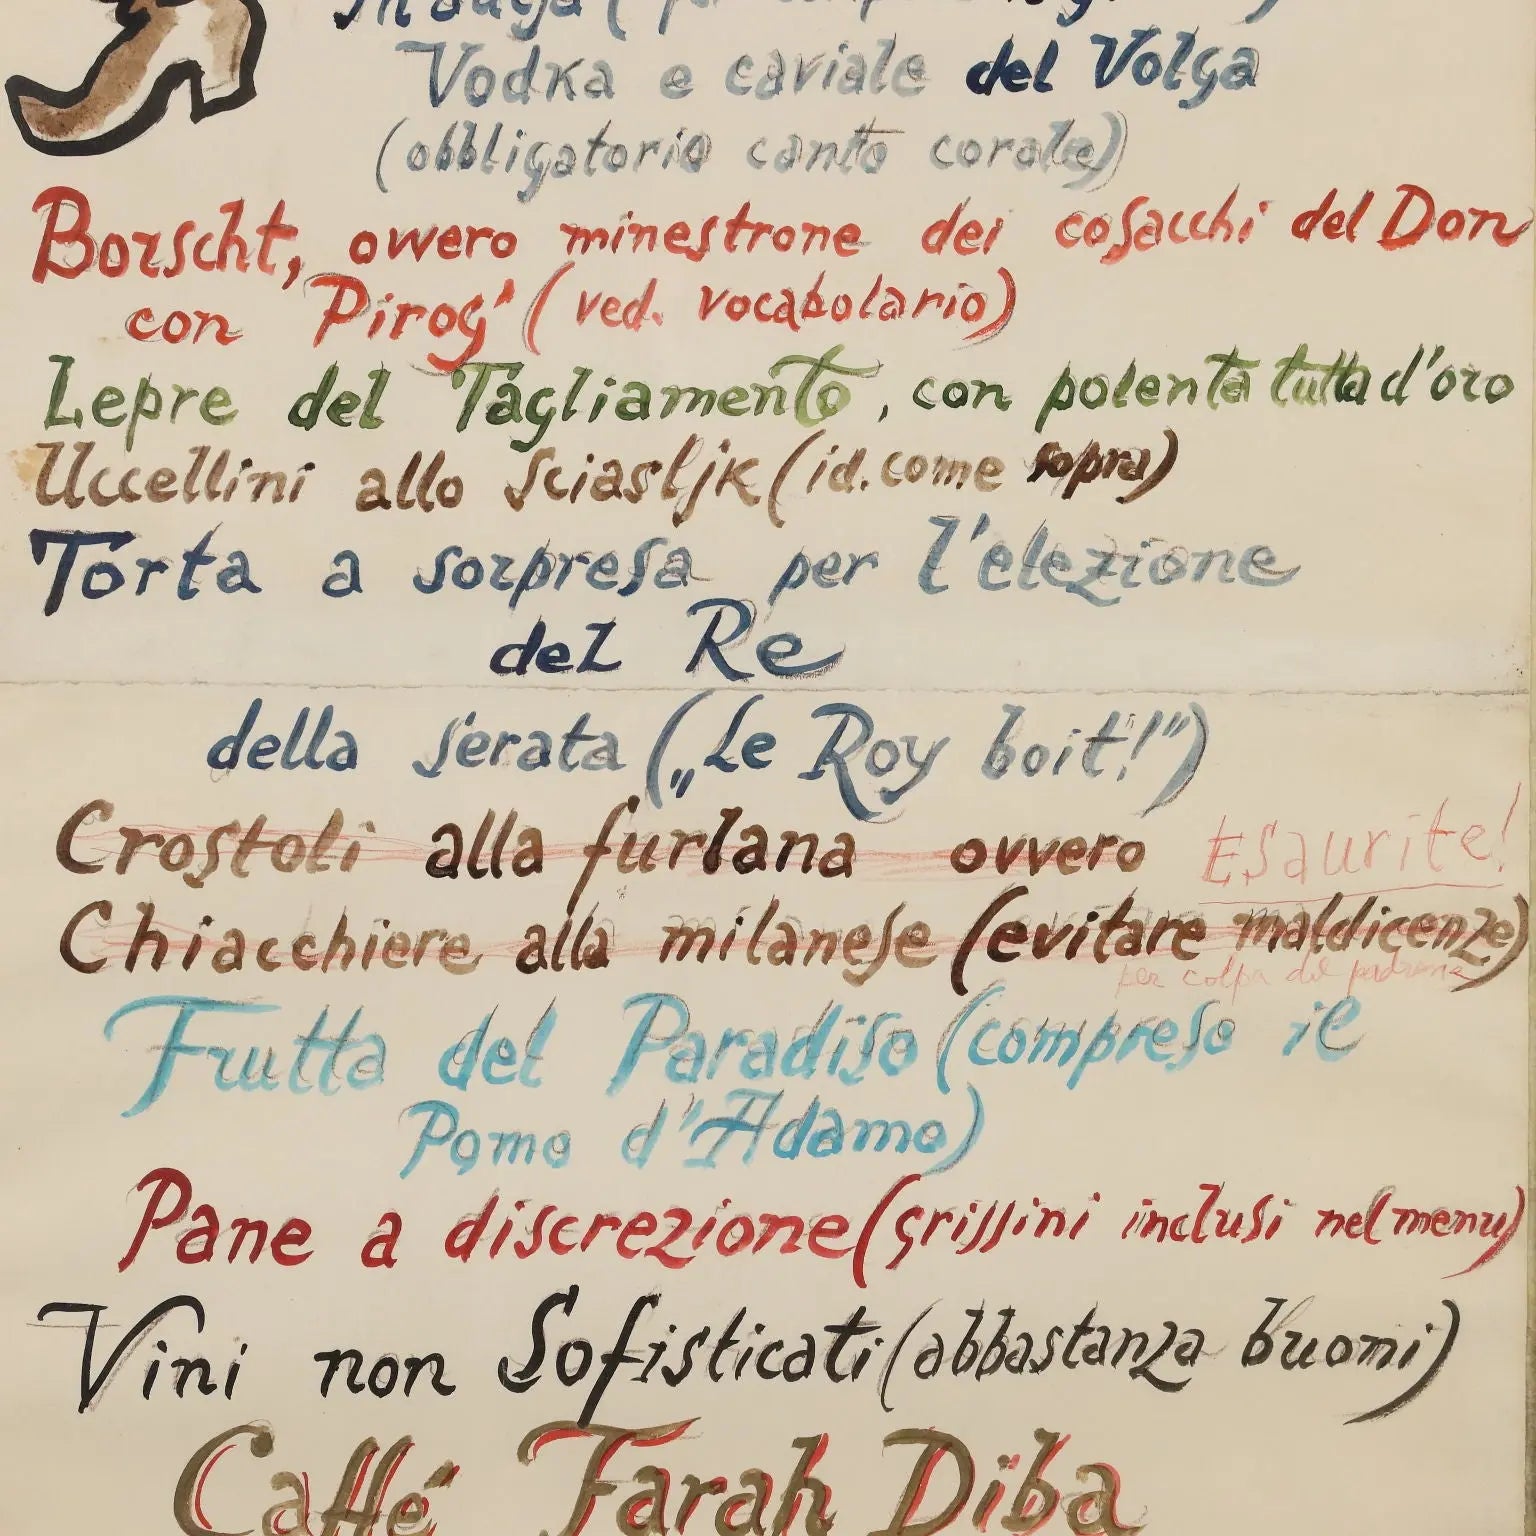 Vodka e caviale del Volga
(obbligatorio canto corale)
Borscht, ovvero minestrone dei cosacchi del Don
con Pirog' (ved. vocabolario)
Lepre del Tagliamento, con polenta tutta d'oro
Uccellini allo sciasljk (id. come sopra)
Torta a sorpresa per l'elezione
del Re
della serata („Le Roy boit!")
Crostoli alla furlana ovvero Esaurite!
Chiacchiere alla milanese (evitare maldicenze)
per colpa del padrone
Frutta del Paradiso (compreso il
Pomo d'Adamo)
Pane a discrezione (grissini inclusi nel menu)
Vini non Sofisticati (abbastanza buoni)
Caffé Farah Diba